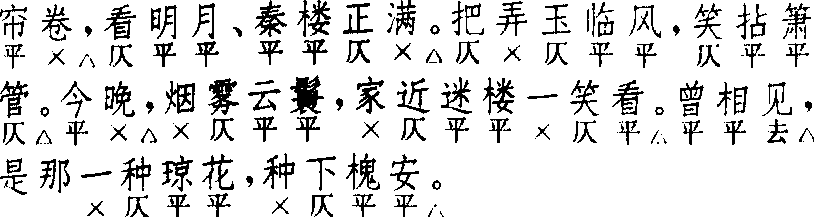 帘卷，看明月、秦楼正满。把弄玉临风，笑拈箫
平×△仄平平平平仄×△仄×仄平平仄平平
管。今晚，烟雾云鬟，家近迷楼一笑看。曾相见，
仄△平×△×仄平平×仄平平×仄平△平平去△
是那一种琼花，种下槐安。
×仄平平×仄平平△